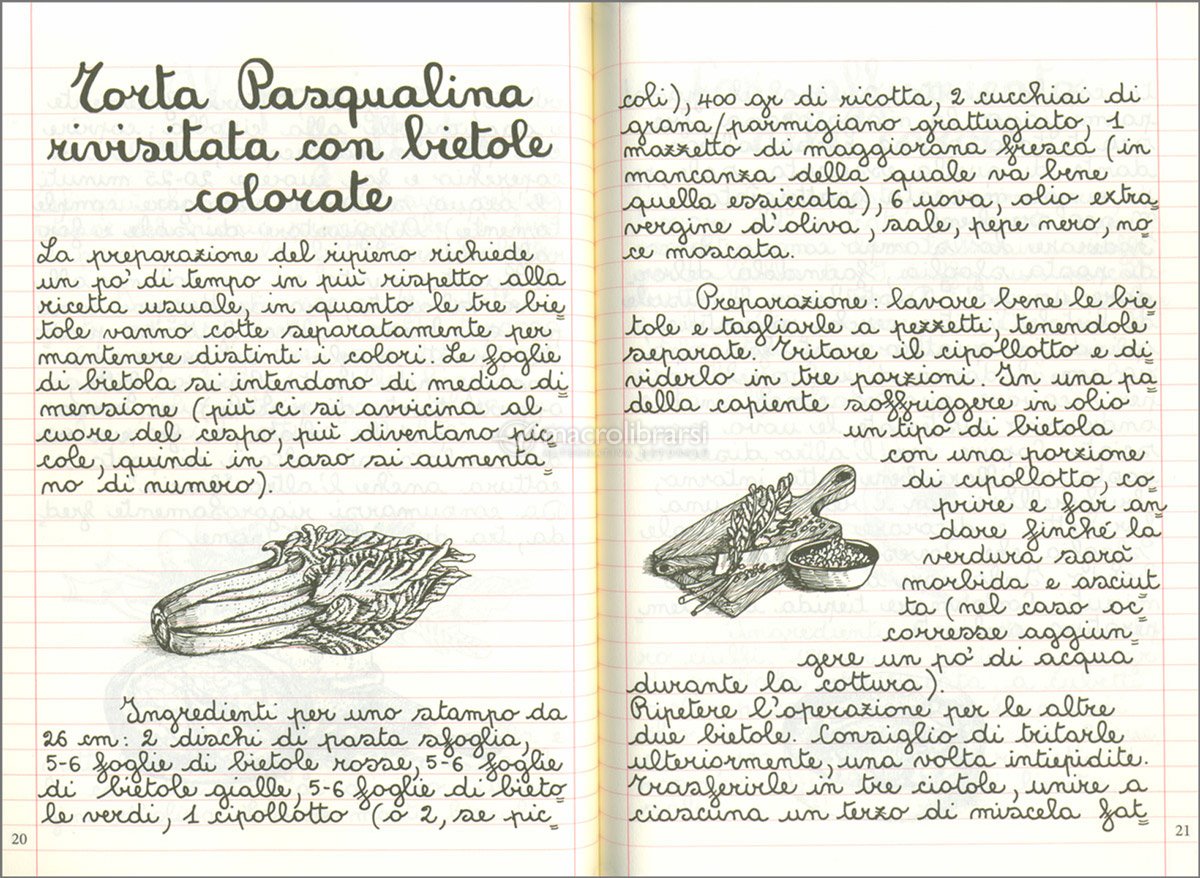 Torta Pasqualina
rivisitata con bietole
colorate
La preparazione del ripieno richiede
un po' di tempo in più rispetto alla
ricetta usuale, in quanto le tre bie=
tole vanno cotte separatamente per
mantenere distinti i colori. Le foglie
di bietola si intendono di media di=
mensione (più ci si avvicina al
cuore del cespo, più diventano pic=
cole, quindi in caso si aumenta=
no di numero).
Ingredienti per uno stampo da
26 cm: 2 dischi di pasta sfoglia,
5-6 foglie di bietole rosse, 5-6 foglie
di bietole gialle, 5-6 foglie di bieto=
le verdi, 1 cipollotto (o 2, se pic=
20
coli), 400 gr di ricotta, 2 cucchiai di
grana/parmigiano grattugiato, 1
mazzetto di maggiorana fresca (in
mancanza della quale va bene
quella essiccata), 6 uova, olio extra=
vergine d'oliva, sale, pepe nero, no=
ce moscata.
Preparazione: lavare bene le bie=
tole e tagliarle a pezzetti, tenendole
separate. Tritare il cipollotto e di=
viderlo in tre porzioni. In una pa=
della capiente soffriggere in olio
un tipo di bietola
con una porzione
di cipollotto, co=
prire e far an=
dare finché la
verdura sarà
morbida e asciut=
ta (nel caso oc=
corresse aggiun=
gere un po' di acqua
durante la cottura).
Ripetere l'operazione per le altre
due bietole. Consiglio di tritarle
ulteriormente, una volta intiepidite.
Trasferirle in tre ciotole, unire a
ciascuna un terzo di miscela fat=
21
macrolibrarsi